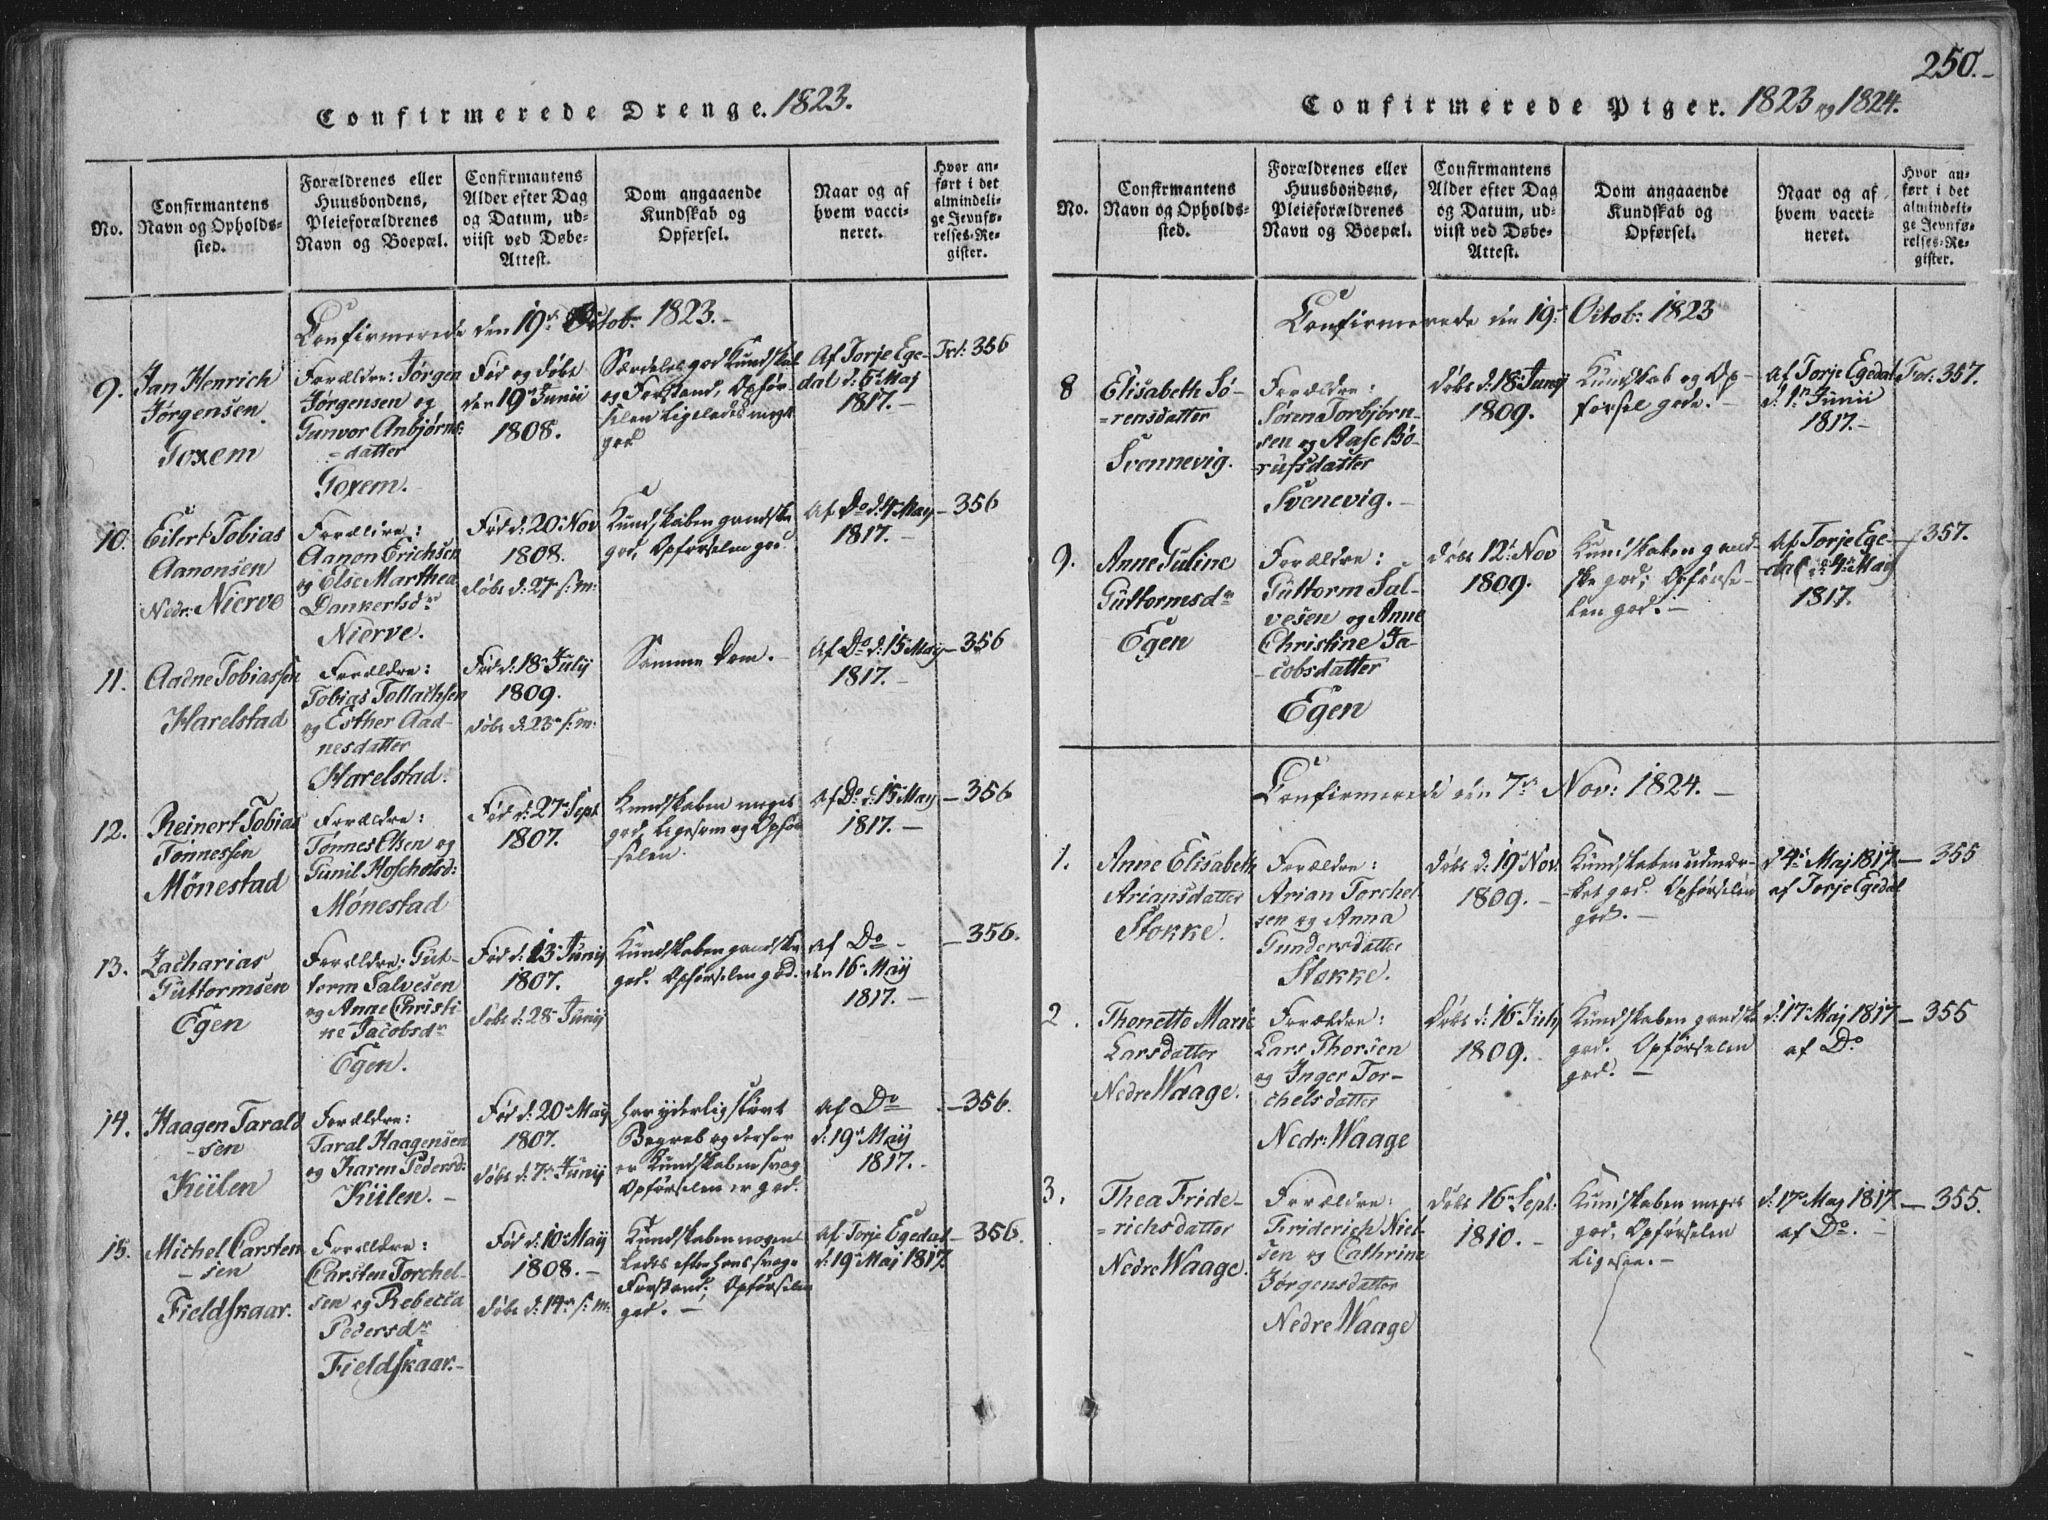 250.-
Confirmerede Drenge. 1823.
No.
Confirmantens
Navn og Opholds-
sted.
Forældrenes eller
Huusbondens,
Pleieforældrenes
Navn og Boepæl.
Confirmantens
Alder efter Dag
og Datum, ud-
viist ved Døbe-
Attest.
Dom angaaende
Kundskab og
Opførsel.
Naar og af
hvem vacci-
neret.
Hvor an-
ført i det
almindeli-
ge Jevnfø-
relses-Re-
gister.
Confirmerede den 19de Octob: 1823.-
9.
Jan Henrich
Jørgensen.
Foxem
Forældre: Jørgen
Jørgensen og
Gunvor Anbjørns-
=datter
Foxem.
Fød og døbt
den 19de Junii
1808.
Særdeles god Kundskab
og Forstand, Opfør-
selen ligeledes meget
god
Af Torje Ege-
dal d: 5te Maj
1817.-
Fol: 356
10.
Eilert Tobias
Aanonsen
Nedr: Nierve
Forældre:
Aanon Erichsen
og Else Marthea
Dankertsdr
Nierve.
Fød d: 20de Nov
1808.
døbt d: 27de s: m:
Kundskaben gandske
god, Opførselen god.
Af Do d: 4de May
1817.-
356
11.
Aadne Tobiassen
Harelstad
Forældre:
Tobias Tollachsen
og Esther Aad-
nesdatter
Harelstad.
Fød d: 18de July
1809.
døbt d: 23de s: m:
Samme Dom.-
Af Do d: 15de May
1817.-
356
12.
Reinert Tobias
Tønnessen
Mönestad
Forældre:
Tønnes Elsen og
Gunil Hoscholsd:
Mönestad
Fød d: 27de Sept
1807.
Kundskaben meget
god, ligesom og Opfør-
selen.
Af Do d: 15de May
1817.-
356
13.
Zacharias
Guttormsen
Egen
Forældre: Gut-
torm Salvesen
og Anne Christi-
ne Jacobsdr
Egen.
Fød d: 13de Junij
1807.
døbt d: 28de Junij
Kundskaben gandske
god. Opførselen god.
af Do-
den 16de May
1817.-
356.
14.
Haagen Tarald
-sen
Kiilen
Forældre:
Taral Haagensen
og Karen Pedersd:
Kiilen.-
Fød d: 20de May
1807.
døbt d: 7de Junij
har yderlig slövt
Begreb og derfor
er Kundskaben svag
Opførselen er god.
af Do
d: 19de May
1817.-
356.
15.
Michel Carsten
-sen
Fieldskaar.
Forældre:
Carsten Torchel-
sen og Rebecca
Pedersdr
Fieldskaar.-
Fød d: 10de May
1808.-
døbt d: 14de s: m:
Kundskaben nogen-
ledes efter hans svage
Forstand; Opførselen
god.-
Af Torje Egedal
d: 19de Maj 1817.
356.
Confirmerede Piger. 1823 og 1824.
No.
Confirmantens
Navn og Opholds-
sted.
Forældrenes eller
Huusbondens,
Pleieforældrenes
Navn og Boepæl.
Confirmantens
Alder efter Dag
og Datum, ud-
viist ved Døbe-
Attest.
Dom angaaende
Kundskab og
Opførsel.
Naar og af
hvem vacci-
neret.
Hvor an-
ført i det
almindeli-
ge Jevnfø-
relses-Re-
gister.
Confirmerede den 19de Octob: 1823
8
Elisabeth Sö-
=rensdatter
Svennevig.
Forældre:
Søren Torbjørn-
sen og Aase Bö-
rufsdatter
Svenevig.-
døbt d: 18de Junij
1809.
Kundskab og Op-
førsel gode.-
Af Torje Egedal
d: 1ste Junii
1817.-
Fol: 357.
9.
Anne Guline
Guttormsdr
Egen
Forældre:
Guttorm Sal-
vesen og Anne
Christine Ja-
cobsdatter
Egen
døbt 12te Nov
1809.
Kundskaben gand-
ske god; Opførse-
len god.-
Af Torje Ege-
dal d: 4de Maij
1817.
357.
Confirmerede den 7de Nov: 1824.-
1.
Anne Elisabeth
Ariansdatter
Stokke.
Forældre:
Arian Torchel-
sen og Anna
Gundersdatter
Stokke.
døbt d: 19de Nov.
1809.-
Kundskaben udmær-
ket god. Opførselen
god.-
d: 4de Maj 1817.
af Torje Egedal
355
2.
Thonette Marie
Larsdatter
Nedre Waage.
Forældre:
Lars Thorsen
og Inger Tor-
chelsdatter
Nedr: Waage
døbt d: 16de July
1809.-
Kundskaben gandske
god. Opførselen
god.-
d: 17de Maj 1817
af Do
355
3.
Thea Fride-
=richsdatter
Nedre Waage.
Forældre:
Friderich Niel-
sen og Cathrine
Jørgensdatter
Nedre Waage
døbt 16de Sept:
1810.-
Kundskaben meget
god, Opførselen
ligesaa.-
d: 17de Maj 1817.
af Do.-
355.